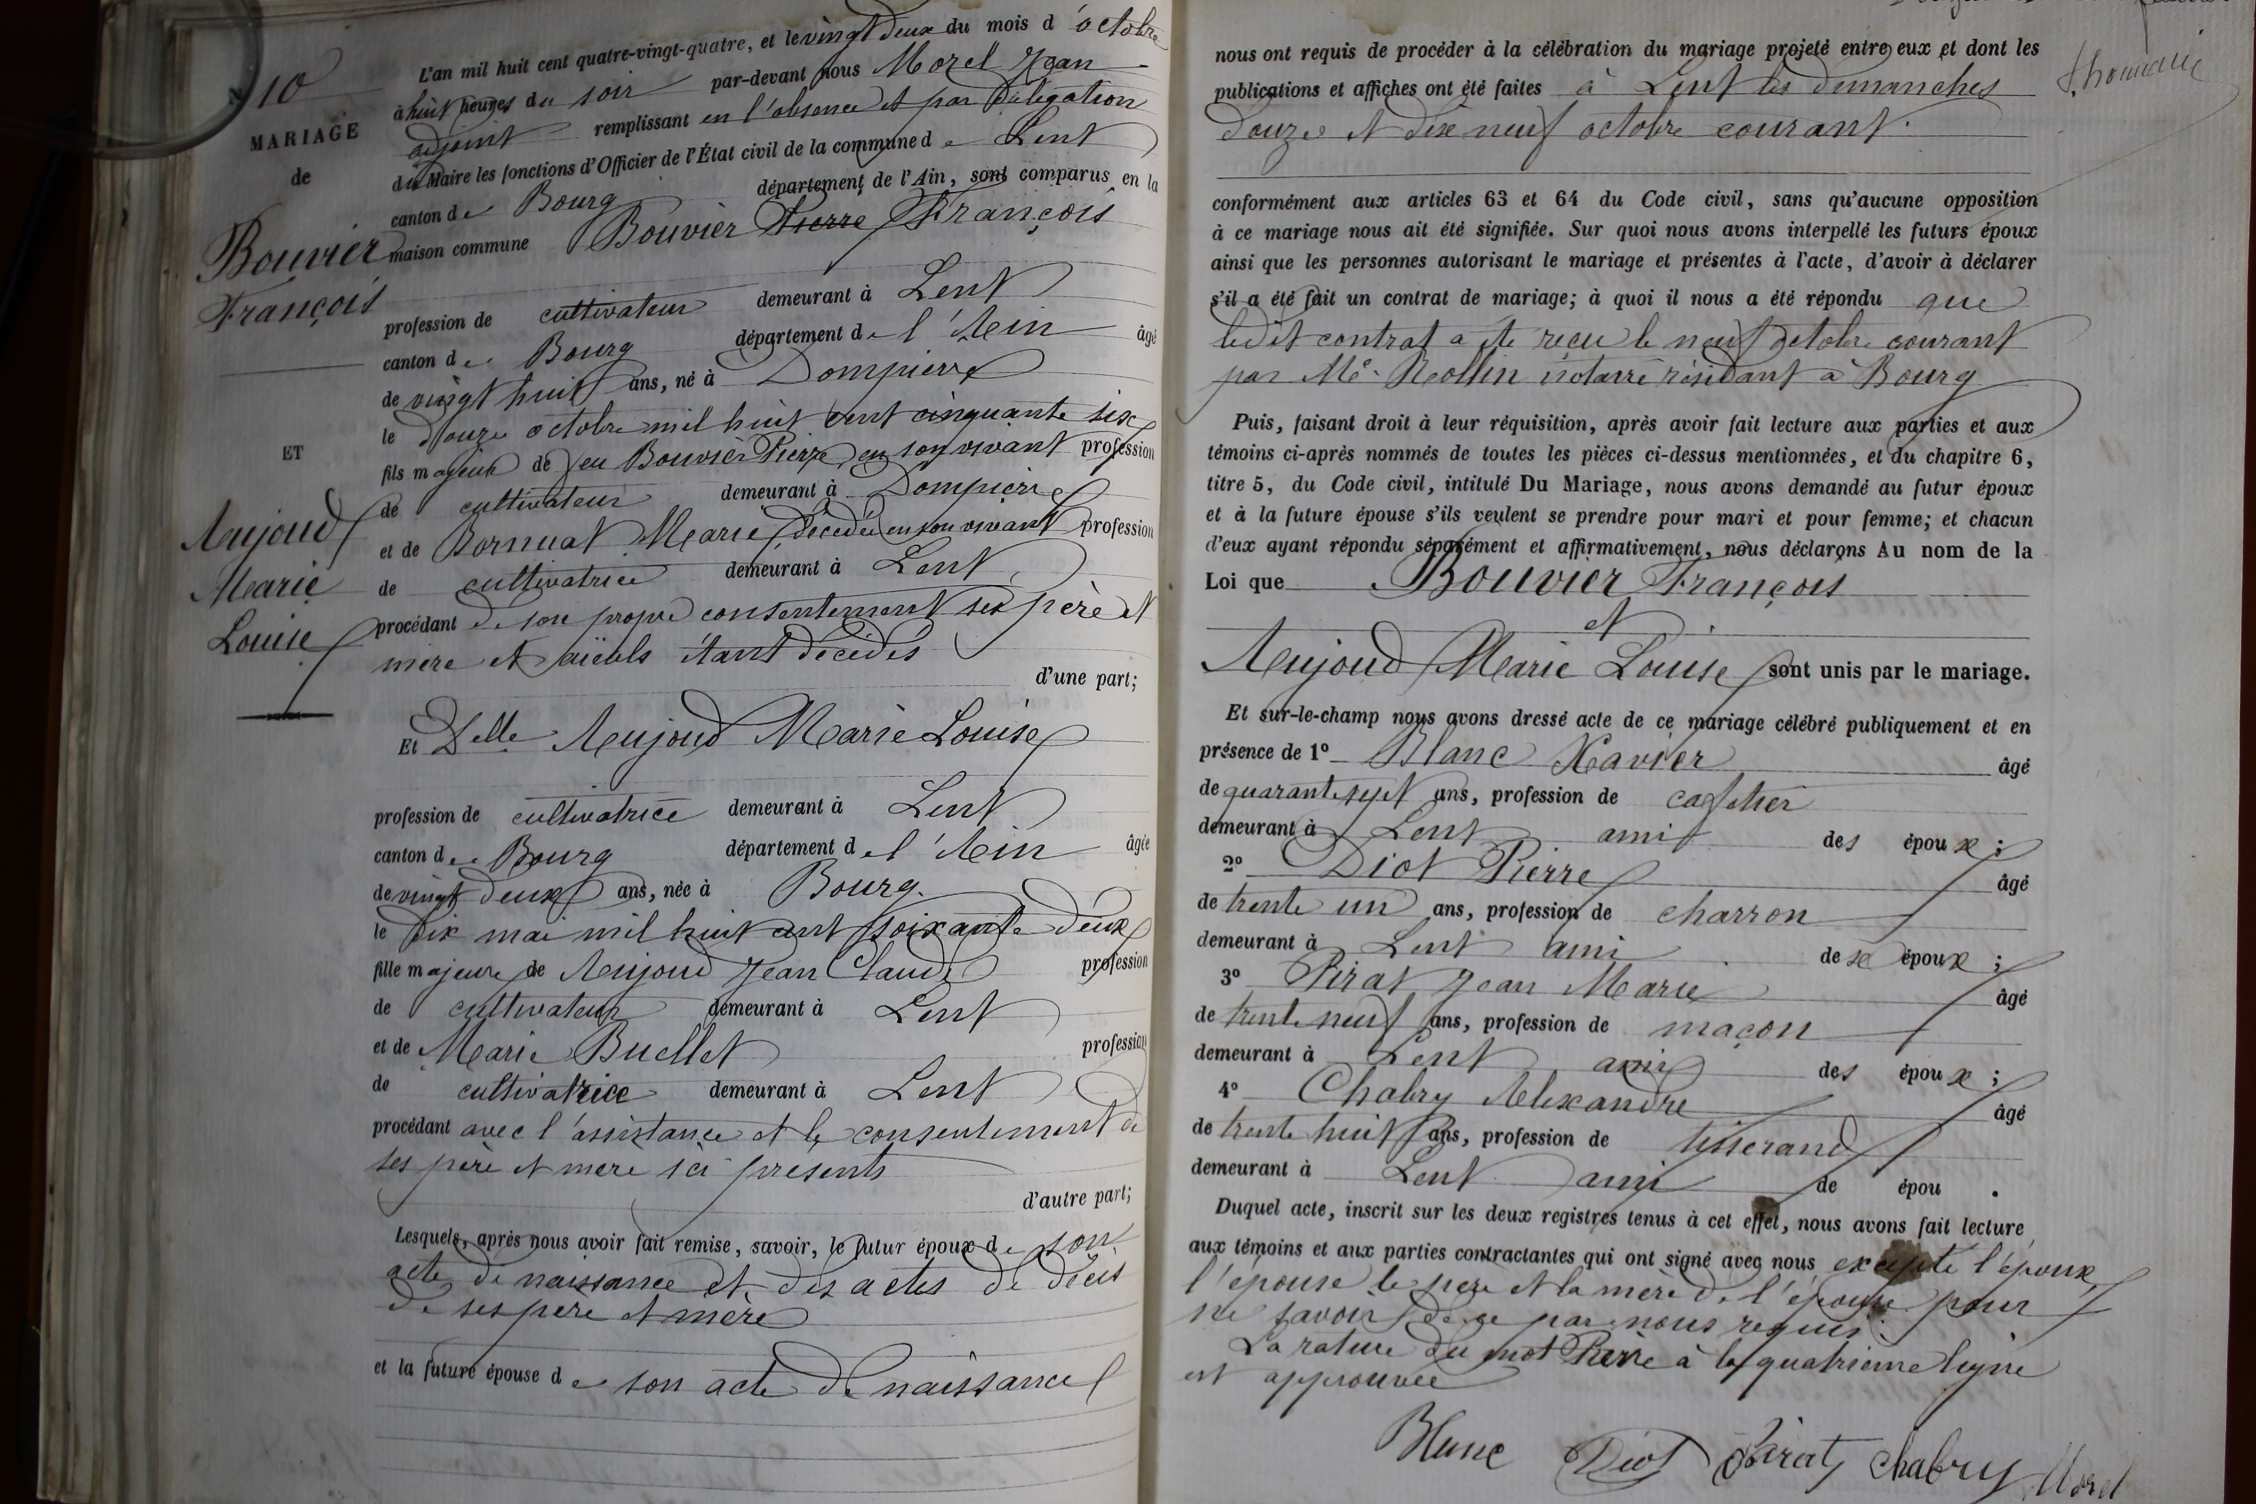 10
MARIAGE
de
Bouvier
François
ET
Aujoud
Marie
Louise
L'an mil huit cent quatre-vingt-quatre, et le vingt deux du mois d'octobre
à huit heures du soir par-devant nous Morel Jean
adjoint remplissant en l'absence et par délégation
du Maire les fonctions d'Officier de l'État civil de la commune de Lent
canton de Bourg département de l'Ain, sont comparus en la
maison commune Bouvier Pierre François
profession de cultivateur demeurant à Lent
canton de Bourg département de l'Ain âgé
de vingt huit ans, né à Dompierre
le douze octobre mil huit cent cinquante six
fils majeur de feu Bouvier Pierre en son vivant profession
de cultivateur demeurant à Dompierre
et de Bornuat Marie, décédée en son vivant profession
de cultivatrice demeurant à Lent
procédant de son propre consentement ses père et
mère et aïeuls étant décédés
d'une part;
Et Delle Aujoud Marie Louise
profession de cultivatrice demeurant à Lent
canton de Bourg département de l'Ain âgée
de vingt deux ans, née à Bourg
le dix mai mil huit cent soixante deux
fille majeure de Aujoud Jean Claude profession
de cultivateur demeurant à Lent
et de Marie Buellet profession
de cultivatrice demeurant à Lent
procédant avec l'assistance et le consentement de
ses père et mère ici présents
d'autre part;
Lesquels, après nous avoir fait remise, savoir, le futur époux de son
acte de naissance et des actes de décès
de ses père et mère
et la future épouse de son acte de naissance
nous ont requis de procéder à la célébration du mariage projeté entre eux et dont les
publications et affiches ont été faites à Lent les dimanches
douze et dix neuf octobre courant.
conformément aux articles 63 et 64 du Code civil, sans qu'aucune opposition
à ce mariage nous ait été signifiée. Sur quoi nous avons interpellé les futurs époux
ainsi que les personnes autorisant le mariage et présentes à l'acte, d'avoir à déclarer
s'il a été fait un contrat de mariage; à quoi il nous a été répondu que
ledit contrat a été reçu le neuf octobre courant
par Me. Rollin notaire résidant à Bourg
Puis, faisant droit à leur réquisition, après avoir fait lecture aux parties et aux
témoins ci-après nommés de toutes les pièces ci-dessus mentionnées, et du chapitre 6,
titre 5, du Code civil, intitulé Du Mariage, nous avons demandé au futur époux
et à la future épouse s'ils veulent se prendre pour mari et pour femme; et chacun
d'eux ayant répondu séparément et affirmativement, nous déclarons Au nom de la
Loi que Bouvier François
et
Aujoud Marie Louise sont unis par le mariage.
Et sur-le-champ nous avons dressé acte de ce mariage célébré publiquement et en
présence de 1º Blanc Xavier âgé
de quarante sept ans, profession de cafetier
demeurant à Lent ami des époux ;
2º Diot Pierre âgé
de trente un ans, profession de charron
demeurant à Lent ami des époux ;
3º Pirat Jean Marie âgé
de trente neuf ans, profession de maçon
demeurant à Lent ami des époux ;
4º Chabry Alexandre âgé
de trente huit ans, profession de tisserand
demeurant à Lent ami de épou .
Duquel acte, inscrit sur les deux registres tenus à cet effet, nous avons fait lecture
aux témoins et aux parties contractantes qui ont signé avec nous excepté l'époux
l'épouse le père et la mère de l'épouse pour
ne savoir de ce par nous requis.
La rature du mot Pierre à la quatrième ligne
est approuvée
Blanc Diot Pirat Chabry Morel